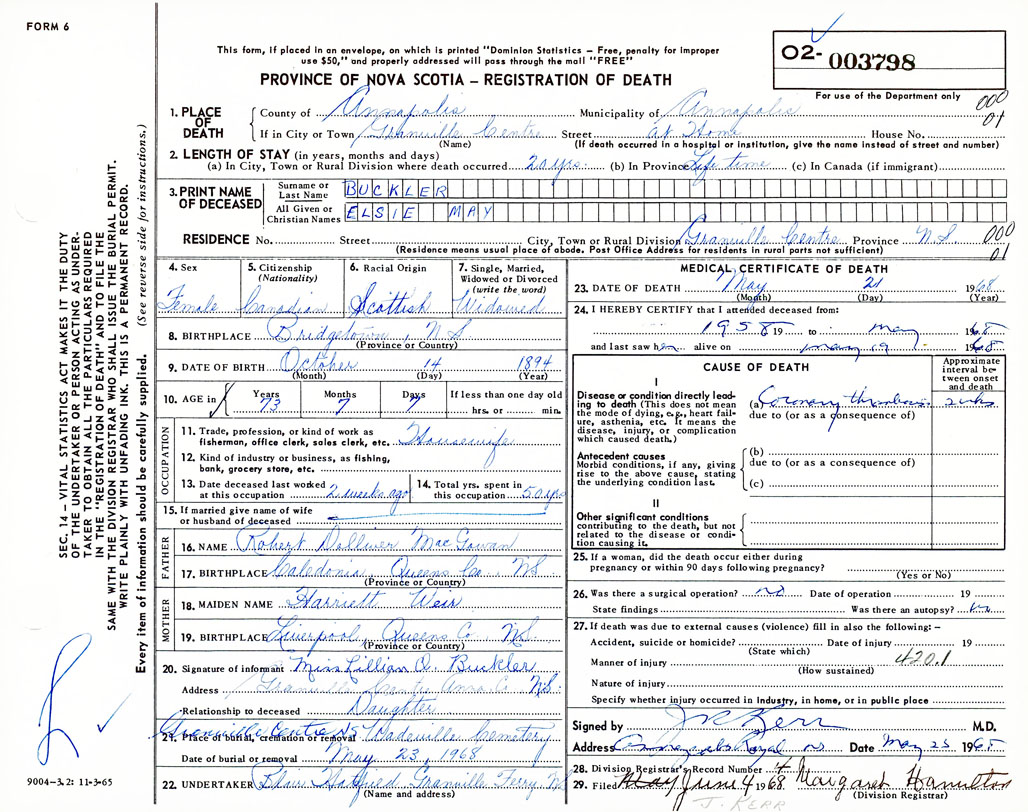 FORM 6
This form, if placed in an envelope, on which is printed "Dominion Statistics – Free, penalty for improper
use $50," and properly addressed will pass through the mail "FREE"
PROVINCE OF NOVA SCOTIA – REGISTRATION OF DEATH
02- 003798
For use of the Department only
000
01
1. PLACE OF DEATH
County of Annapolis Municipality of Annapolis
If in City or Town Granville Centre Street at Home House No.
(Name) (If death occurred in a hospital or institution, give the name instead of street and number)
2. LENGTH OF STAY (in years, months and days)
(a) In City, Town or Rural Division where death occurred 20 yrs. (b) In Province Life time (c) In Canada (if immigrant)
3. PRINT NAME OF DECEASED
Surname or Last Name BUCKLER
All Given or Christian Names ELSIE MAY
RESIDENCE No. Street City, Town or Rural Division Granville Centre Province N.S.
(Residence means usual place of abode. Post Office Address for residents in rural parts not sufficient)
000
01
4. Sex Female
5. Citizenship (Nationality) Canadian
6. Racial Origin Scottish
7. Single, Married, Widowed or Divorced (write the word) Widowed
8. BIRTHPLACE Bridgetown, N.S
(Province or Country)
9. DATE OF BIRTH October 14 1894
(Month) (Day) (Year)
10. AGE in Years 73 Months 7 Days 7 If less than one day old hrs. or min.
OCCUPATION
11. Trade, profession, or kind of work as fisherman, office clerk, sales clerk, etc. Housewife
12. Kind of industry or business, as fishing, bank, grocery store, etc.
13. Date deceased last worked at this occupation 2 weeks ago
14. Total yrs. spent in this occupation 50 yrs
15. If married give name of wife or husband of deceased
FATHER
16. NAME Robert Dolliver MacGowan
17. BIRTHPLACE Caledonia, Queens Co. N.S
(Province or Country)
MOTHER
18. MAIDEN NAME Harriett Weir
19. BIRTHPLACE Liverpool, Queens Co. N.S.
(Province or Country)
20. Signature of informant Miss Lillian O. Buckler
Address Granville Centre Anna. Co N.S.
Relationship to deceased Daughter
21. Place of burial, cremation or removal Granville Centre Wadeville Cemetery
Date of burial or removal May 23, 1968
22. UNDERTAKER Blair Granville Ferry N.S
(Name and address)
MEDICAL CERTIFICATE OF DEATH
23. DATE OF DEATH May 21 1968
(Month) (Day) (Year)
24. I HEREBY CERTIFY that I attended deceased from:
1958 19 to May 1968
and last saw her alive on May 19 1968
CAUSE OF DEATH
Approximate interval between onset and death
I
Disease or condition directly leading to death (This does not mean the mode of dying, e.g., heart failure, asthenia, etc. It means the disease, injury, or complication which caused death.)
(a) Coronary thrombosis 2 wks
due to (or as a consequence of)
Antecedent causes
Morbid conditions, if any, giving rise to the above cause, stating the underlying condition last.
(b)
due to (or as a consequence of)
(c)
II
Other significant conditions
contributing to the death, but not related to the disease or condition causing it.
25. If a woman, did the death occur either during
pregnancy or within 90 days following pregnancy?
(Yes or No)
26. Was there a surgical operation? no Date of operation 19
State findings Was there an autopsy? no
27. If death was due to external causes (violence) fill in also the following: –
Accident, suicide or homicide? Date of injury 19
(State which)
Manner of injury 420.1
(How sustained)
Nature of injury
Specify whether injury occurred in Industry, in home, or in public place
Signed by J R Kerr M.D.
Address Annapolis Royal NS Date May 25 1968
28. Division Registrar's Record Number 4
29. Filed May June 4 1968 Margaret Hamilton
(Division Registrar)
J. KERR
SEC. 14 – VITAL STATISTICS ACT MAKES IT THE DUTY
OF THE UNDERTAKER OR PERSON ACTING AS UNDER-
TAKER TO OBTAIN ALL THE PARTICULARS REQUIRED
IN THE "REGISTRATION OF DEATH" AND TO FILE THE
SAME WITH THE DIVISION REGISTRAR WHO SHALL ISSUE THE BURIAL PERMIT.
WRITE PLAINLY WITH UNFADING INK. THIS IS A PERMANENT RECORD.
Every item of information should be carefully supplied. (See reverse side for instructions.)
9004-3.2: 11-3-65